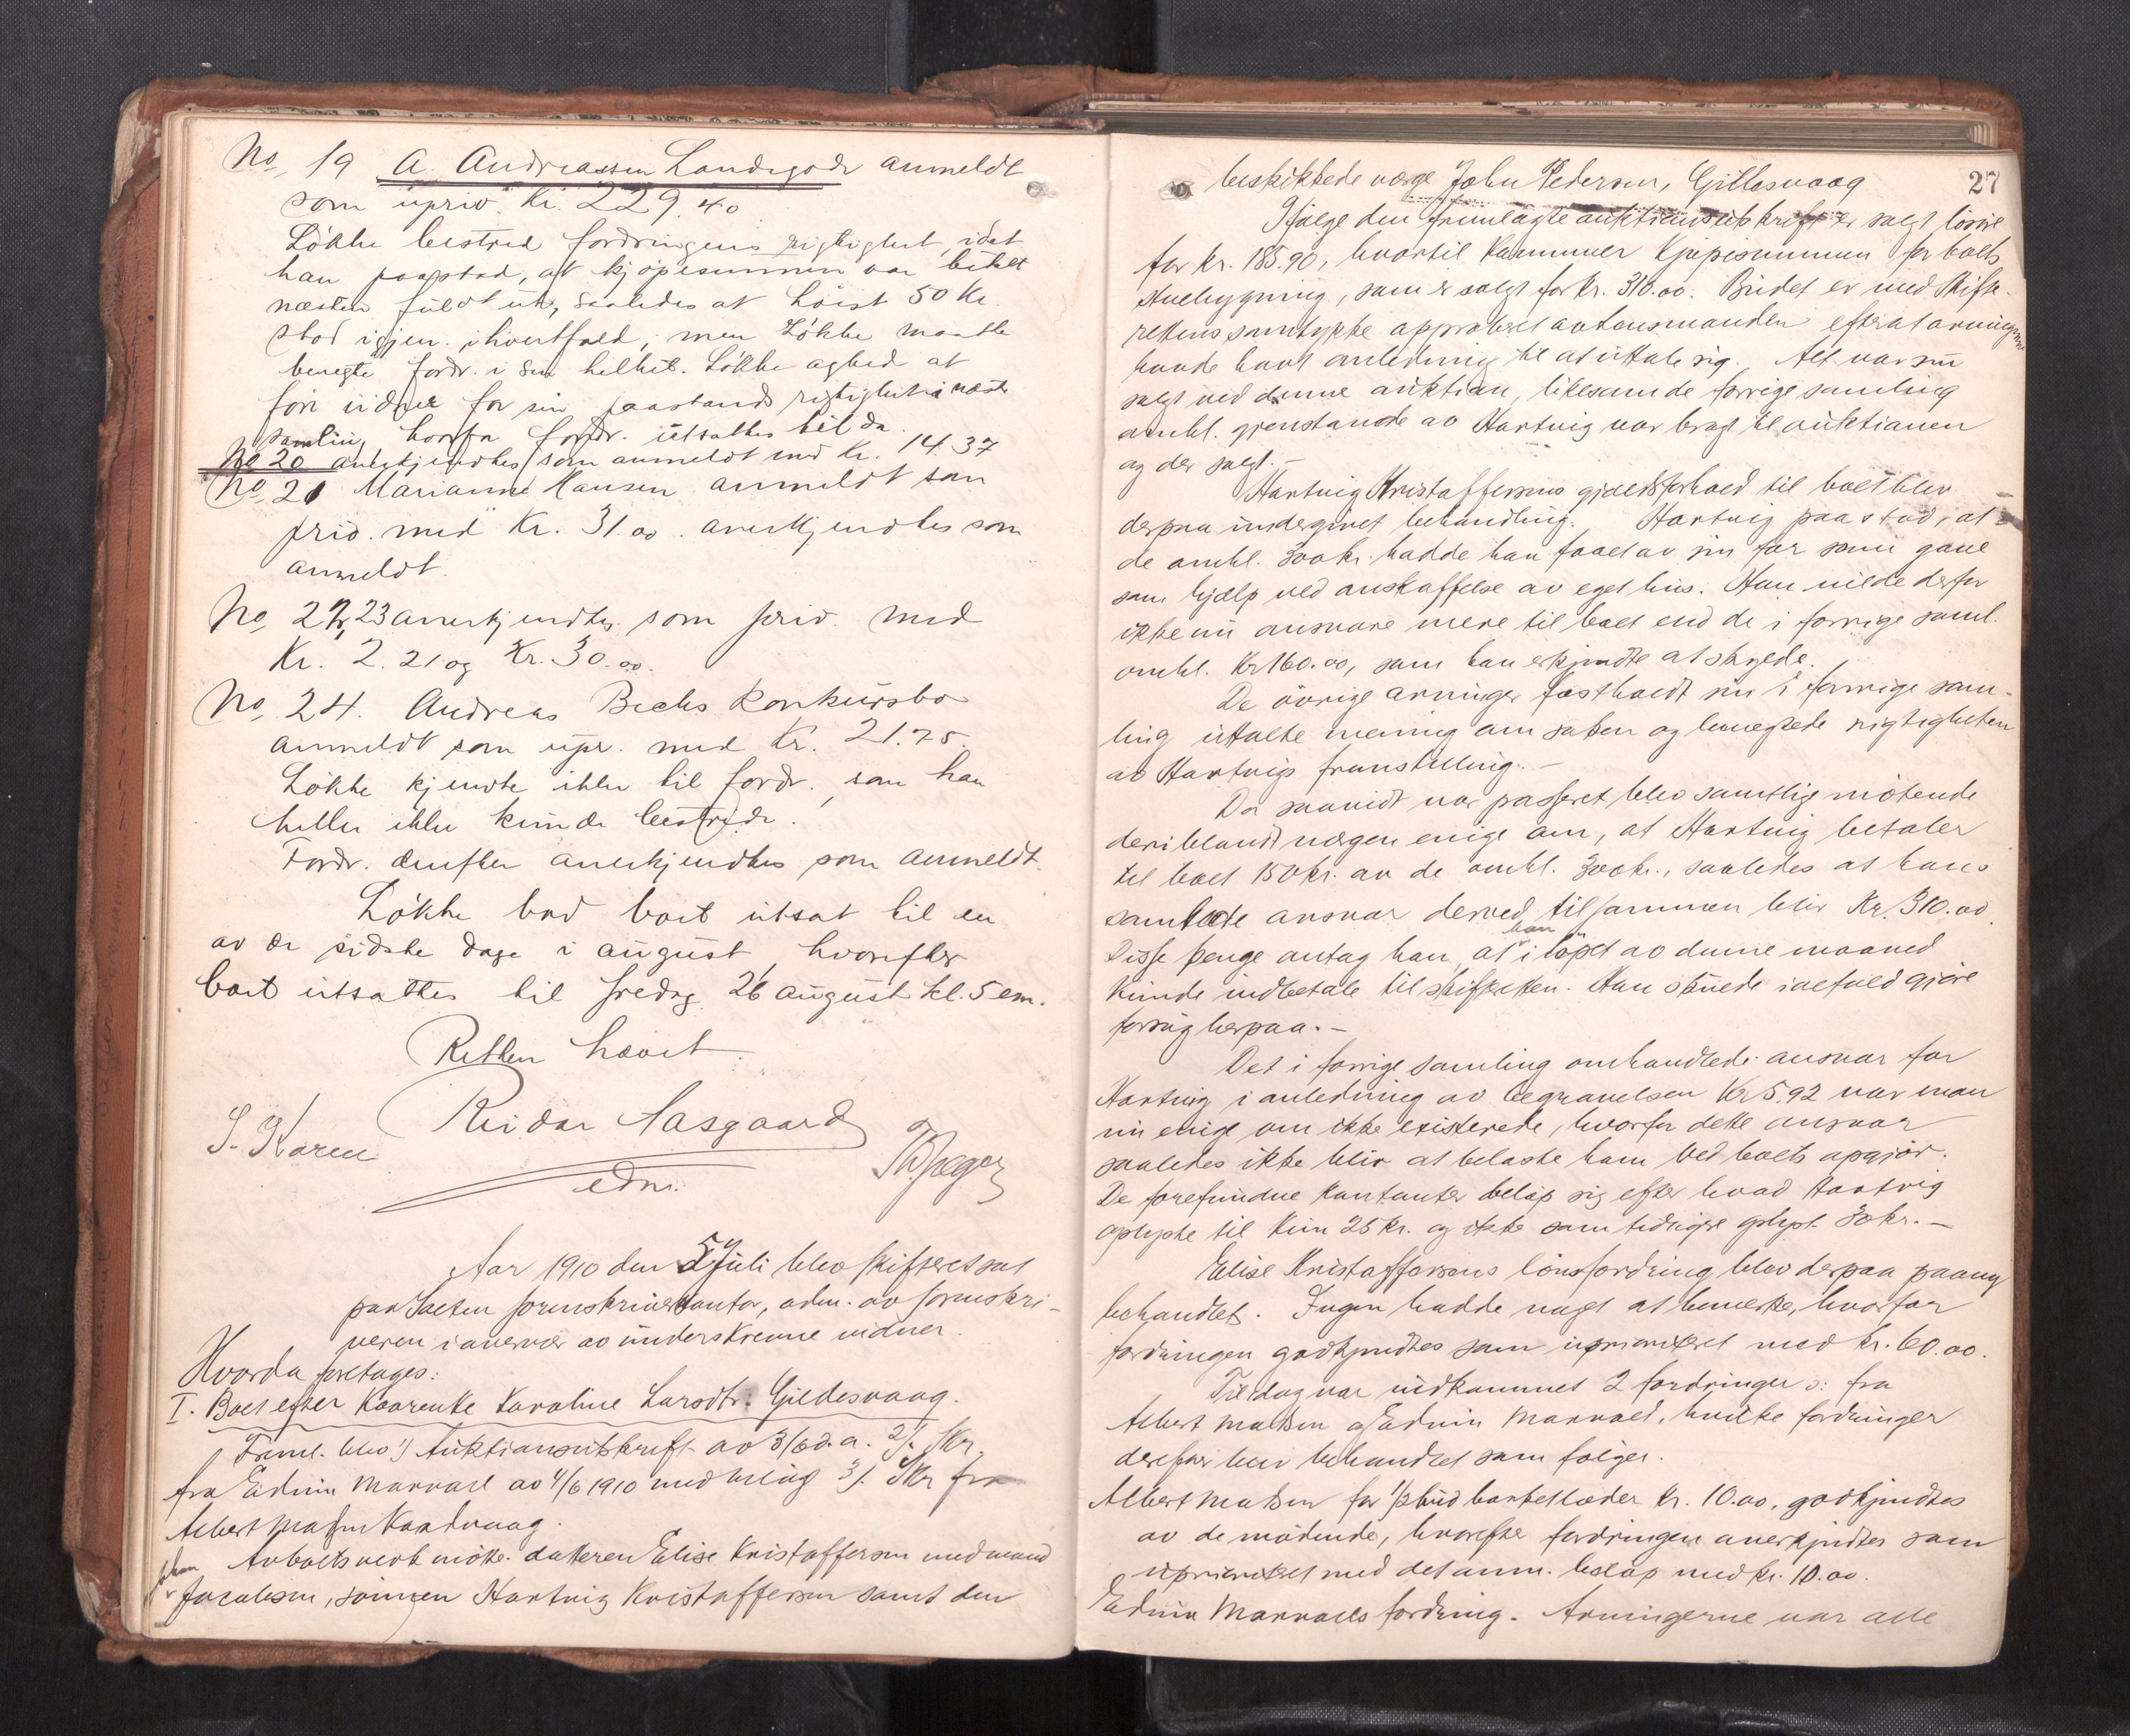 No, 19 A. Andreassen Landegode anmeldt
som upriv. Kr. 229.40
Løkke bestred fordringens rigtighet, idet
han paastod, at kjøpesummen var betalt
næsten fuldt ut, saaledes at høist 50 Kr.
stod igjen. ihvertfald, men Løkke maatte
benegte fordr. i sin helhet. Løkke agted at
føre vidner for sin paastands rigtighet i næste
samling, hvorfor fordr. utsattes til da.
No 20 anerkjendtes som anmeldt med Kr. 14.37
No 21 Marianne Hansen anmeldt som
priv. med Kr. 31.00. anerkjendtes som
anmeldt.
No, 22, 23 anerkjendtes som priv. med
Kr. 2.21 og Kr. 30.00.
No, 24. Andreas Bechs Konkursbo
anmeldt som upr. med Kr. 21.75.
Løkke kjendte ikke til fordr., som han
heller ikke kunde bestride.
Fordr. derefter anerkjendtes som anmeldt.
Løkke bad boet utsat til en
av de sidste dage i august, hvorefter
boet utsattes til fredag 26 august kl. 5 em.
Retten hævet.
Reidar Aasgaard
S. Karen
edsv.
Aar 1910 den 5 Juli blev skifteret sat
paa Salten sorenskriverkontor, adm. av sorenskri-
veren i anvervær av underskrevne vidner.
Hvorda foretages:
I. Boet efter Kaarente Karoline Larsdtr. Gildesvaag.
Freml. blev 1) Auktionsutskrift av 3/6 d.a. 2). Skr.
fra Edvin Marvael av 4/6 1910 med bilag 3). Skr fra
Albert Madsen Kandvaag.
Av boets verk møtte. datteren Elise Kristoffersen med mand
Johan
Jacobsen, sønnen Hartvig Kristoffersen samt den
27
beskikkede værge John Pedersen, Gillesvaag
Ifølge den fremlagte auktionsutskrift er salgt løsøre
for kr. 185.90, hvortil kommer Kjøpesummen for boets
stuebygning, som er solgt for kr. 310.00. Budet er med Skifte-
rettens samtykke approberet av lensmanden efterat arvingerne
havde havt anledning til at uttale sig. Alt var nu
salgt ved denne auktion, likesom de i forrige samling
omhl. gjenstande av Hartvig var bragt til auktionen
og der salgt.-
Hartvig Kristoffersens gjældsforhold til boet blev
derpaa undergivet behandling. Hartvig paastod, at
de omhl. 300 kr. hadde han faaet av sin far som gave
som hjælp ved anskaffelse av eget hus. Han vilde derfor
ikke nu ansvare mere til boet end de i forrige saml.
omhl. Kr 160.00, som han erkjendte at skylde.
De øvrige arvinger fastholdt sin i forrige sam-
ling uttalte mening om saken og benegtede rigtigheten
av Hartvigs fremstilling.-
Da saavidt var passeret, blev samtlige møtende
deriblandt værgen enige om, at Hartvig betaler
til boet 150 kr. av de omhl. 300 kr., saaledes at hans
samlede ansvar derved tilsammen blir Kr. 310.00.
han
Disse penge antog han, at i løpet av denne maaned
kunde indbetale til skifteretten. Han skulde ialfald gjøre
forsøg herpaa.-
Det i forrige samling omhandlede ansvar for
Hartvig i anledning av begravelsen Kr 5.92 var man
nu enige om ikke existerede, hvorfor dette ansvar
saaledes ikke blir at belaste ham ved boets opgjør.
De forefundne kontanter beløp sig efter hvad Hartvig
oplyste til kun 25 kr. og ikke som tidligere oplyst 30 kr.-
Elise Kristoffersens lønsfordring blev derpaa paany
behandlet. Ingen hadde noget at bemerke, hvorfor
fordringen godkjendtes som uprioriteret med kr. 60.00.
Til dag var indkommet 2 fordringer ɔ: fra
Albert Madsen og Edvin Marvael, hvilke fordringer
derefter blev behandlet som følger.
Albert Madsen for 1/2 hud barketlæder kr. 10.00, godkjendtes
av de mødende, hvorefter fordringen anerkjendtes som
uprioriteret med det anm. beløp med kr. 10.00.
Edvin Marvaels fordring. Arvingerne var alle